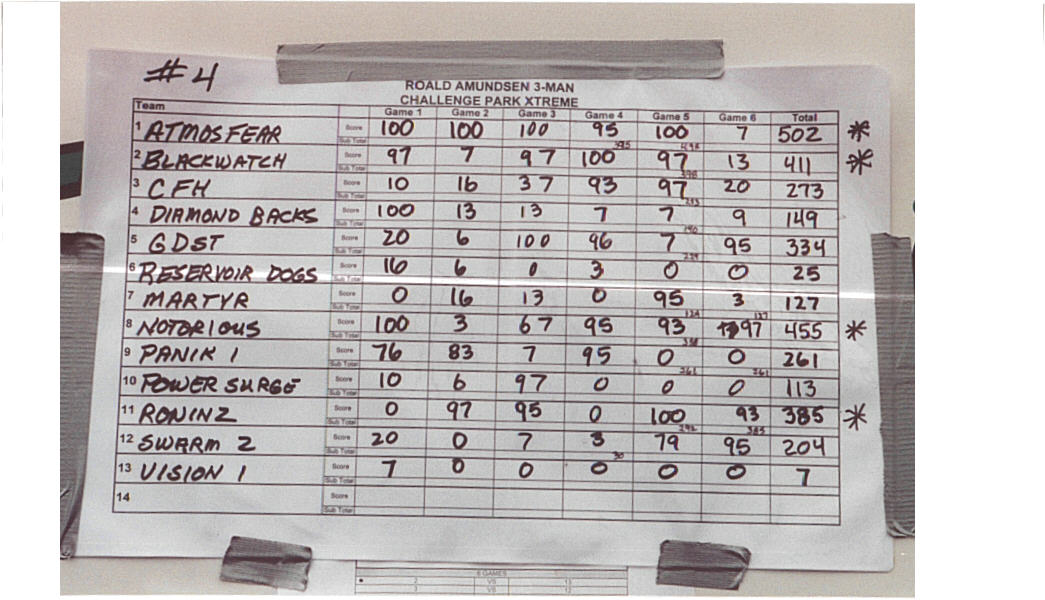 #4
ROALD AMUNDSEN 3-MAN
CHALLENGE PARK XTREME
Team Game 1 Game 2 Game 3 Game 4 Game 5 Game 6 Total
1 ATMOSFEAR Score 100 100 100 95 100 7 502 *
Sub Total 395 495
2 BLACKWATCH Score 97 7 97 100 97 13 411 *
Sub Total 398
3 CFH Score 10 16 37 93 97 20 273
Sub Total 253
4 DIAMOND BACKS Score 100 13 13 7 7 9 149
Sub Total 140
5 GDST Score 20 6 100 96 7 95 334
Sub Total 239
6 RESERVOIR DOGS Score 16 6 0 3 0 0 25
Sub Total
7 MARTYR Score 0 16 13 0 95 3 127
Sub Total 124 127
8 NOTORIOUS Score 100 3 67 95 93 97 455 *
Sub Total 358
9 PANIK 1 Score 76 83 7 95 0 0 261
Sub Total 261 261
10 POWER SURGE Score 10 6 97 0 0 0 113
Sub Total
11 RONIN 2 Score 0 97 95 0 100 93 385 *
Sub Total 292 385
12 SWARM 2 Score 20 0 7 3 79 95 204
Sub Total 30
13 VISION 1 Score 7 0 0 0 0 0 7
Sub Total
14 Score
Sub Total
6 GAMES
2 VS 13
3 VS 12